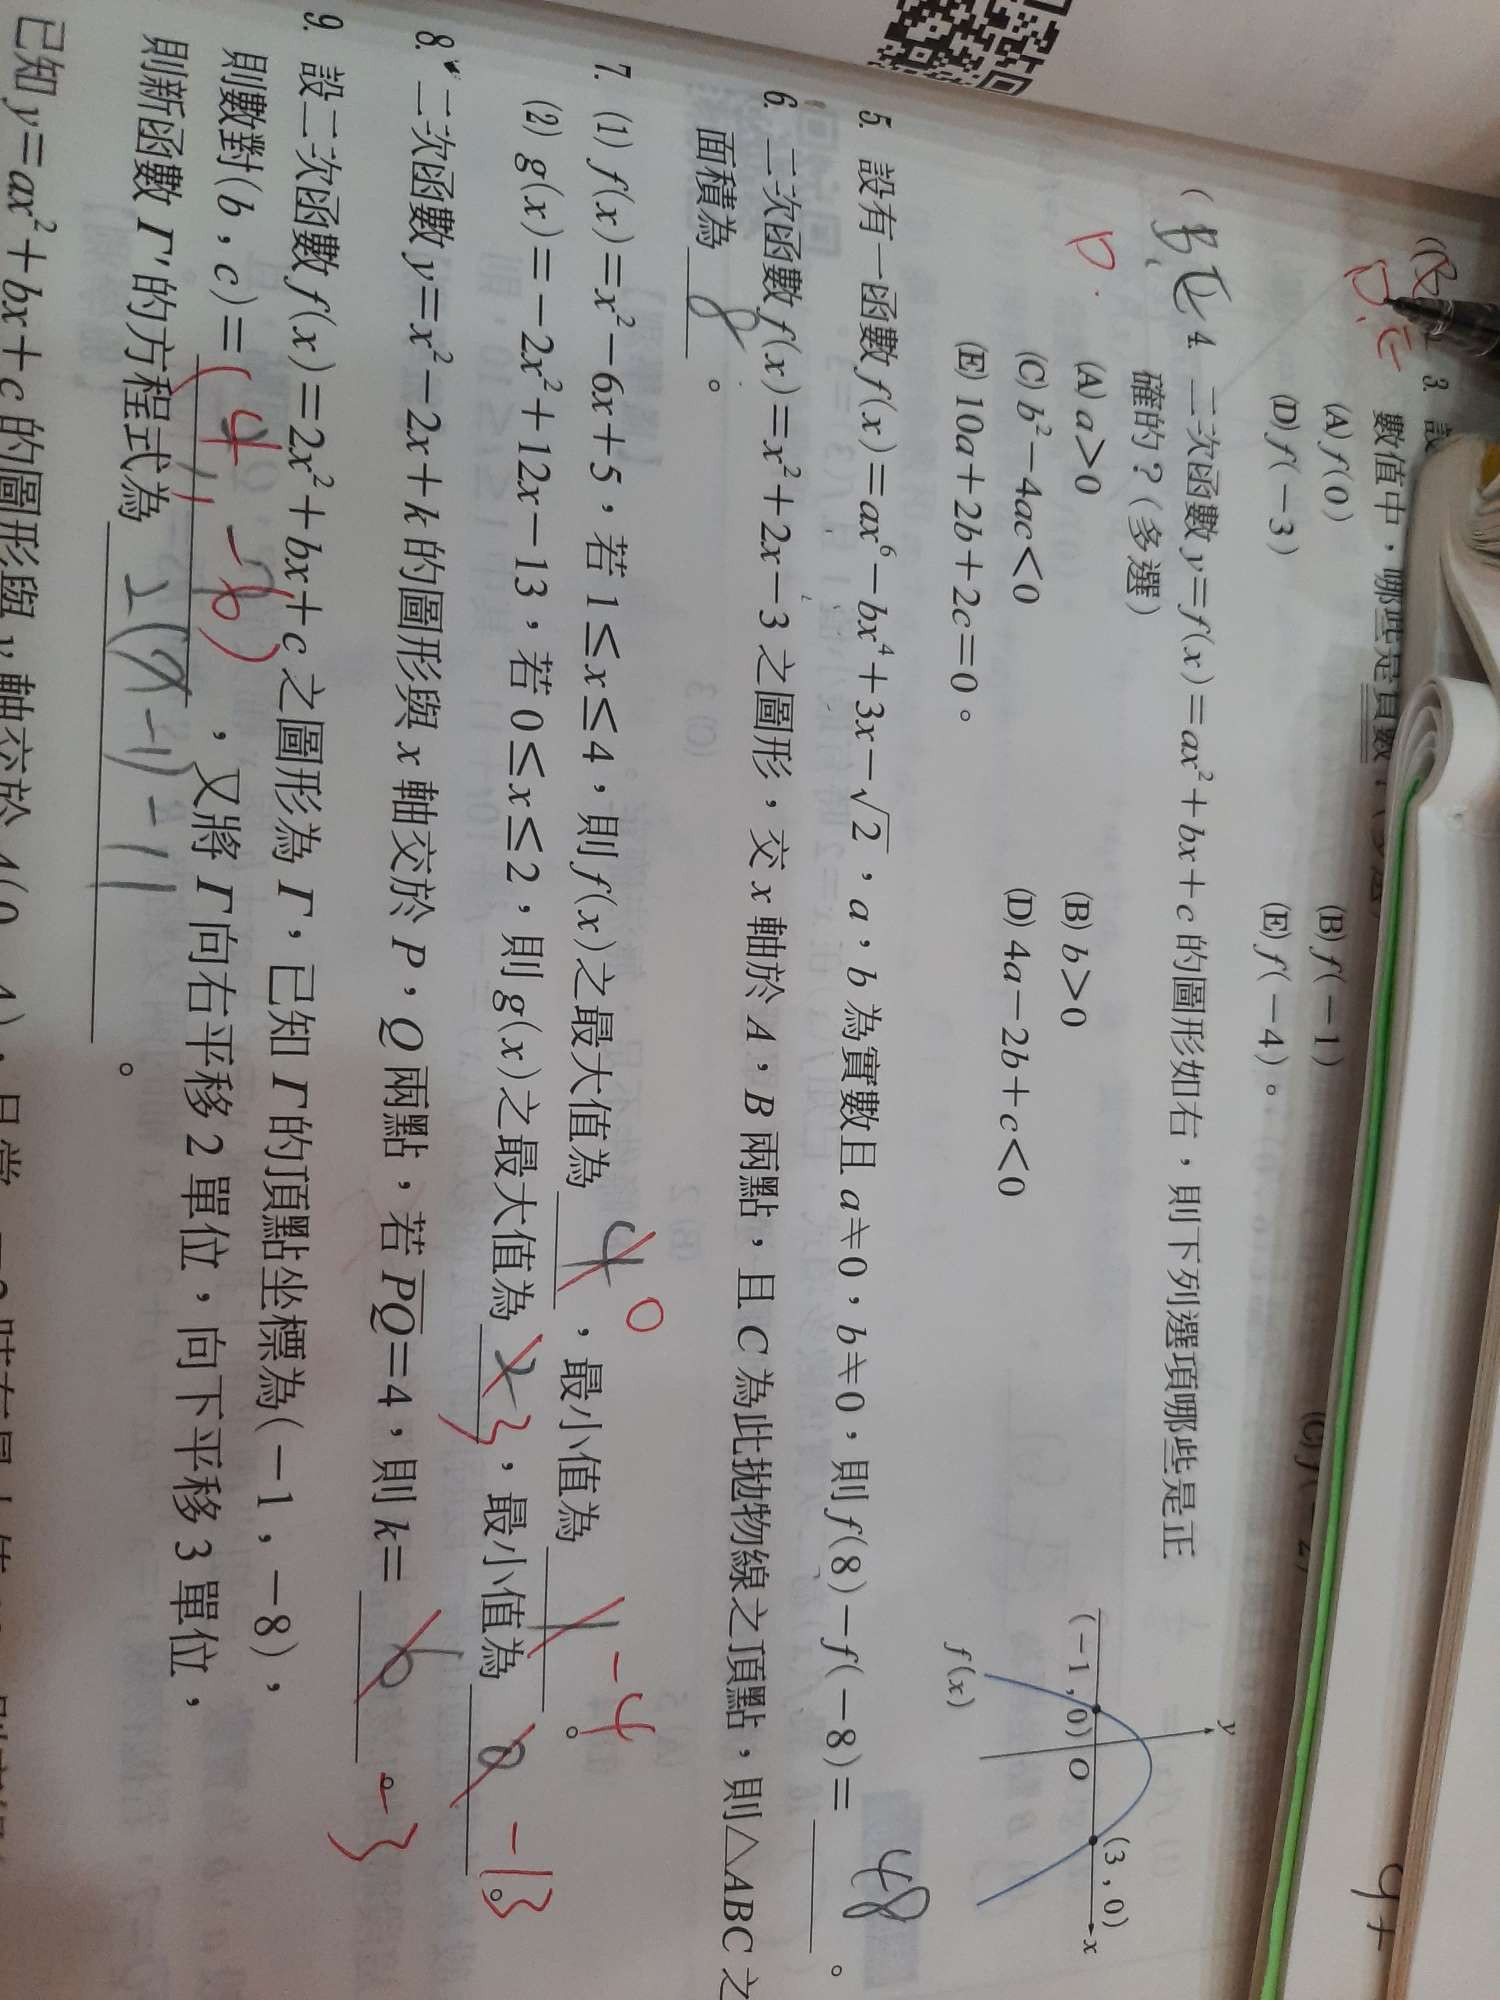 3.
數值中，哪些是負數？
(A) f(0)
(B) f(－1)
(D) f(－3)
(E) f(－4)。
D
B E
D
4. 二次函數 y＝f(x)＝ax²＋bx＋c 的圖形如右，則下列選項哪些是正
確的？(多選)
(A) a＞0
(B) b＞0
(C) b²－4ac＜0
(D) 4a－2b＋c＜0
(E) 10a＋2b＋2c＝0。
y
(－1 , 0)
O
(3 , 0)
x
f(x)
5. 設有一函數 f(x)＝ax⁶－bx⁴＋3x－√2，a，b 為實數且 a≠0，b≠0，則 f(8)－f(－8)＝ 48 。
6. 二次函數 f(x)＝x²＋2x－3 之圖形，交 x 軸於 A，B 兩點，且 C 為此拋物線之頂點，則△ABC 之
面積為 8 。
7. (1) f(x)＝x²－6x＋5，若 1≤x≤4，則 f(x) 之最大值為 4 0 ，最小值為 1 －4 。
(2) g(x)＝－2x²＋12x－13，若 0≤x≤2，則 g(x) 之最大值為 3 ，最小值為 －13 。
8. 二次函數 y＝x²－2x＋k 的圖形與 x 軸交於 P，Q 兩點，若 PQ＝4，則 k＝ 6 －3 。
9. 設二次函數 f(x)＝2x²＋bx＋c 之圖形為 Γ，已知 Γ 的頂點坐標為(－1，－8)，
則數對(b，c)＝ (4, －6) ，又將 Γ 向右平移 2 單位，向下平移 3 單位，
則新函數 Γ' 的方程式為 2(x－1)²－11 。
已知 y＝ax²＋bx＋c 的圖形與 y 軸交於